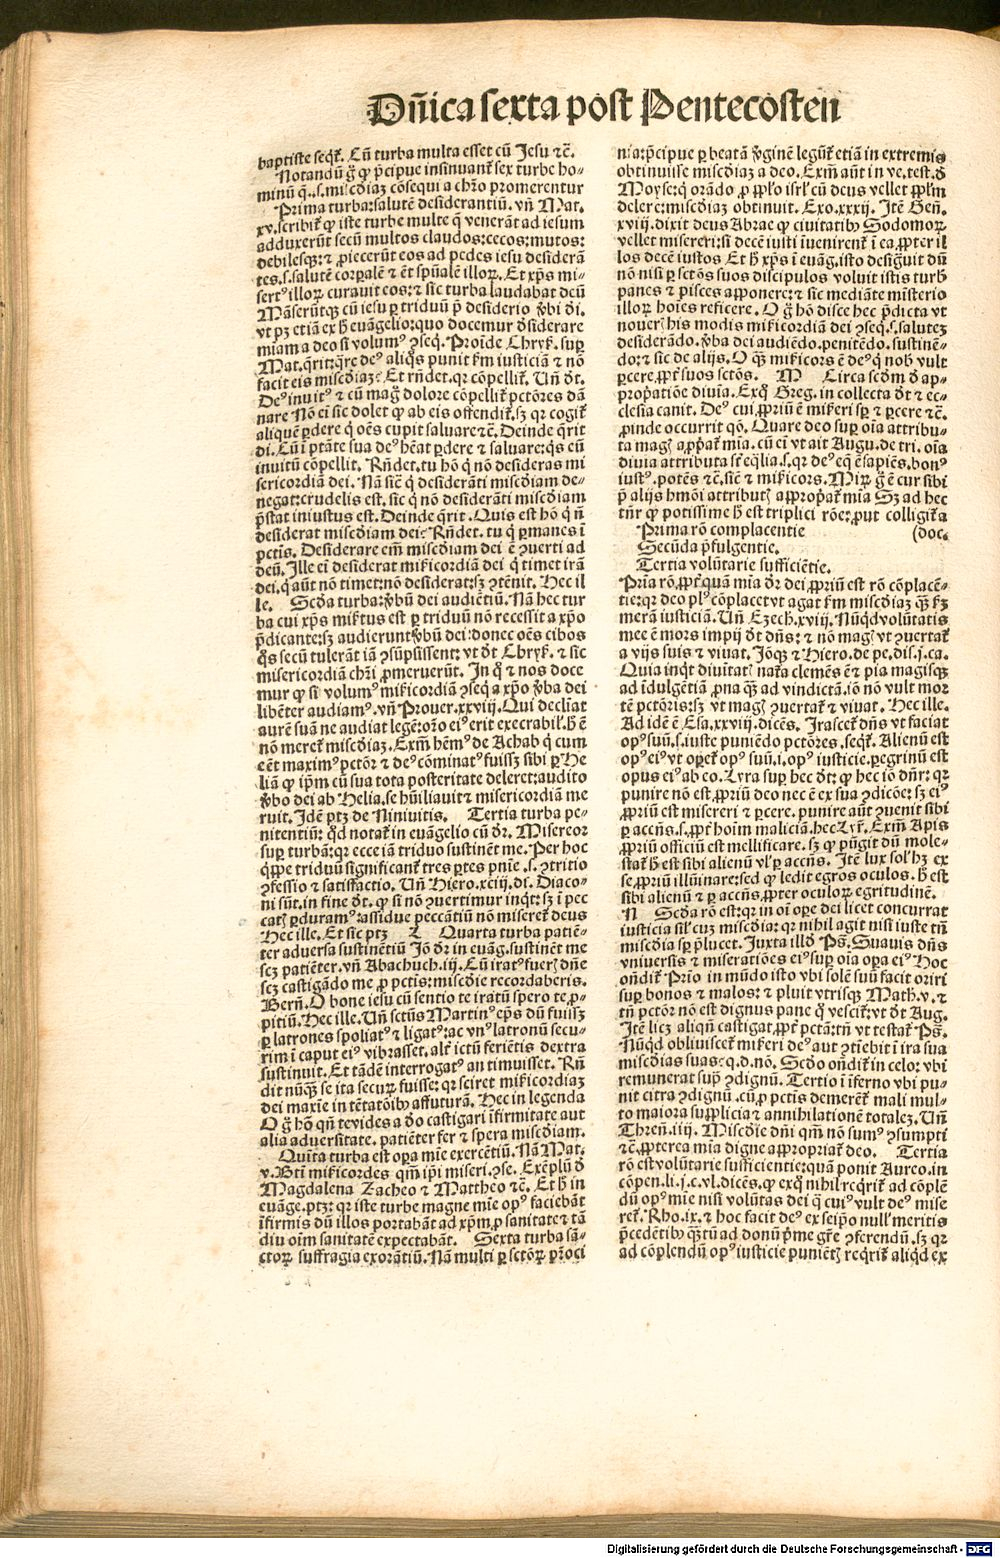 Dñica sexta post Pentecosten
baptiste seqť. Cũ turba multa esset cũ Jesu ⁊c̃.
Notandũ g̃ ꝙ p̃cipue insinuanť sex turbe ho-
minũ q̃.s.mi c̃diaz cõsequi a chr̃o promerentur
Prima turba:salutẽ desiderantiũ. vñ Mat.
xv.scribiť ꝙ iste turbe multe q̃ venerãt ad iesum
adduxerũt secũ multos claudos:cecos:mutos:
debilesqꝫ:⁊ ꝓiecerũt eos ad pedes iesu desiderã
tes.s.salutẽ corꝑalẽ ⁊ ẽt spũalẽ illoꝝ. Et xp̃s mi-
serťꝰ illoꝝ curauit eos:⁊ sic turba laudabat deũ
Mãserũtqꝫ cũ iesu ꝑ triduũ p̃ desiderio ṽbi di.
vt pꝫ etiã ex h̃ euãgelio:quo docemur d̃siderare
miam a deo si volumꝰ ꝯseq̃. Proĩde Chryš. suꝑ
Mat.q̃rit:q̃re deꝰ aliq̃s punit ẜm iusticiã ⁊ nõ
facit eis misc̃diaz: Et rñdet.qꝛ cõpelliť. Uñ d̃t.
Deꝰ inuitꝰ ⁊ cũ mag̃ dolore cõpelliť pctõres dã
nare Nõ ei sic dolet ꝙ ab eis offendiť.sꝫ qꝛ cogiť
aliquẽ ꝑdere q̃ oẽs cupit saluare⁊c̃. Deinde q̃rit
di. Cũ ĩ ptãte sua deꝰ hẽat ꝑdere ⁊ saluare:q̃s cũ
inuitũ cõpellit. Rñdet.tu hõ q̃ nõ desideras mi
sericordiã dei. Nã sicũ q̃ desiderãti misc̃diam de-
negat:crudelis est. sic q̃ nõ desiderãti misc̃diam
p̃stat iniustus est. Deinde q̃rit. Quis est hõ q̃ ñ
desiderat misc̃diam dei: Rñdet. tu q̃ ꝑmanes ĩ
pctĩs. Desiderare em̃ misc̃diam dei ẽ ꝯuerti ad
deũ. Ille ei desiderat mik̃icordiã dei q̃ timet irã
dei.q̃ aũt nõ timet:nõ desiderat:sꝫ ꝯtẽnit. Hec il
le. Scd̃a turba:ṽbũ dei audiẽtiũ. Nã hec tur
ba cui xp̃s misertus est ꝑ triduũ nõ recessit a xp̃o
p̃dicante:sꝫ audierunt ṽbũ dei:donec oẽs cibos
q̃s secũ tulerãt iã ꝯsũpsissent:vt d̃t Chryš. ⁊ sic
misericordiã chr̃i ꝓmeruerũt. In q̃ ⁊ nos doce
mur ꝙ si volumꝰ mik̃icordiã ꝯseq̃ a xp̃o ṽba dei
libẽter audiamꝰ.vñ Prouer.xxviij. Qui declĩat
aurẽ suã ne audiat legẽ:orõ eiꝰ erit execrabiľ.h̃ ẽ
nõ mereť misc̃diaz. Exm̃ hẽmꝰ de Achab q̃ cum
eẽt maximꝰ pctõr ⁊ deꝰ cõminatꝰ fuissꝫ sibi ꝑ He
liã ꝙ ip̃m cũ sua tota posteritate deleret:audito
ṽbo dei ab Helia.se hũiliauit⁊ misericordiã me
ruit. Idẽ ptꝫ de Niniuitis. Tertia turba pe-
nitentiũ: q̃d notať in euãgelio cũ d̃r. Misereor
suꝑ turbã:qꝛ ecce iã triduo sustinẽt me. Per hoc
q̃ppe triduũ significanť tres ꝑtes pnĩe.s.ꝯtritio
ꝯfessio ⁊ satisfactio. Uñ Hiero.xciij.di. Diaco-
ni sũt.in fine d̃t.ꝙ si nõ ꝯuertimur inq̃t:sꝫ ĩ pec
catꝭ ꝑduramꝰ:assidue peccãtiũ nõ misereť deus
Hec ille. Et sic ptꝫ L Quarta turba patiẽ-
ter aduersa sustinẽtiũ Jõ d̃r in euãg.sustinẽt me
scꝫ patiẽter.vñ Abachuch.iij. Cũ iratꝰ fuerꝭ dñe
scꝫ castigãdo me ꝓ pctĩs:misc̃die recordaberis.
Berñ. O bone iesu cũ sentio te iratũ spero te ꝓ-
pitiũ. Hec ille. Uñ sctũs Martinꝰ ep̃s dũ fuissꝫ
ꝑ latrones spoliatꝰ ⁊ ligatꝰ:ac vnꝰ latronũ secu-
rim ĩ caput eiꝰ vibrasset.alť ictũ feriẽtis dextra
sustinuit. Et tãdẽ interrogatꝰ an timuisset. Rñ
dit nũqꝫ se ita securũ fuisse: qꝛ sciret mik̃icordiaz
dei maxie in tẽtatõibꝫ affuturã. Hec in legenda
O g̃ hõ qñ te vides a d̃o castigari ĩfirmitate aut
alia aduersitate. patiẽter fer ⁊ spera misc̃diam.
Quĩta turba est oꝑa mie exercẽtiũ. Nã Mat.
v. Btĩ mik̃icordes qm̃ ip̃i miseri.ꝯse. Exẽplũ d̃
Magdalena Zacheo ⁊ Mattheo ⁊c̃. Et h̃ in
euãge.ptꝫ: qꝛ iste turbe magne mie opꝰ faciebãt
ĩfirmis dũ illos portabãt ad xp̃m.ꝓ sanitate ⁊ tã
diu oĩm sanitatẽ expectabãt. Sexta turba sã-
ctoꝝ suffragia exorãtiũ. Nã multi ꝑ sctõꝝ p̃oci
nia:p̃cipue ꝑ beatã ṽginẽ legũť etiã in extremis
obtinuisse misc̃diaz a deo. Exm̃ aũt in ve.test.d̃
Moyse:q̃ orãdo ꝓ pplo isrľ cũ deus vellet pplm̃
delere:misc̃diaz obtinuit. Exo.xxxij. Itẽ Geñ.
xviij.dixit deus Abrae ꝙ ciuitatibꝫ Sodomoꝝ
vellet misereri:si decẽ iusti ĩuenirenť ĩ ea ꝓpter il
los decẽ iustos Et h̃ xp̃s ĩ euãg.isto desig̃uit dũ
nõ nisi ꝑ sctõs suos discipulos voluit istis turbꝭ
panes ⁊ pisces apponere:⁊ sic mediãte mĩsterio
illoꝝ hoĩes reficere. O g̃ hõ disce hec p̃dicta vt
noueris his modis mik̃icordiã dei ꝯseq̃.s.salutez
desiderãdo.ṽba dei audiẽdo.penitẽdo.sustinẽ-
do:⁊ sic de alijs. O q̃ꝫ mik̃icors ẽ deꝰ q̃ nobꝭ vult
ꝑcere ꝓpť suos sctõs. M Circa scd̃m d̃ ap-
propatiõe diuĩa. Exq̃ Greg. in collecta d̃t ⁊ ec-
clesia canit. Deꝰ cui ꝓpriũ ẽ miseri sꝑ ⁊ ꝑcere ⁊c̃.
ꝓinde occurrit qõ. Quare deo suꝑ oĩa attribu-
ta magꝭ appropať mia. cũ ei vt ait Augu.de tri. oĩa
diuĩa attributa sť eq̃lia.s.qꝛ deꝰ eq̃ ẽ sapiẽs.bonꝰ
iustꝰ.potẽs ⁊c̃.sic ⁊ mik̃icors. Miꝝ g̃ ẽ cur sibi
p̃ alijs hmõi attributꝭ appropať mia Sꝫ ad hec
tñr ꝙ potissime h̃ est triplici rõe:ꝓut colligiť a
Prima rõ complacentie (doc.
Secũda p̃fulgentie.
Tertia volũtarie sufficiẽtie.
Pria rõ.ꝓpť quã mia d̃r dei ꝓpriũ est rõ cõplacẽ-
tie:qꝛ deo plꝰ cõplacet vt agat ẜm misc̃diaz q̃ꝫ ẜꝫ
merã iusticiã. Uñ Ezech.xviij. Nũq̃d volũtatis
mee ẽ mors impij d̃t dñs: ⁊ nõ magꝭ vt ꝯuertať
a vijs suis ⁊ viuat. Jõqꝫ ⁊ Hiero.de pe.dis.j.ca.
Quia inq̃t diuĩtatꝭ nať a clemẽs ẽ⁊ pia magisqꝫ
ad ĩdulgẽtiã ꝓna q̃ꝫ ad vindictã.iõ nõ vult mor
tẽ pctõris:sꝫ vt magꝭ ꝯuertať ⁊ viuat. Hec ille.
Ad idẽ ẽ Esa.xxviij.dicẽs. Irasceť dñs vt faciat
opꝰ suũ.s.iuste puniẽdo pctõres.seqť. Alienũ est
opꝰ eiꝰ vt oꝑeť opꝰ suũ.i.opꝰ iusticie.ꝑegrinũ est
opus eiꝰ ab eo. Lyra suꝑ hec d̃t: ꝙ hec iõ dñr: qꝛ
punire nõ est ꝓpriũ deo nec ẽ ex sua ꝯdicõe: sꝫ eiꝰ
ꝓpriũ est misereri ⁊ ꝑcere. punire aũt ꝯuenit sibi
ꝑ accñs.s.ꝓpť hoĩm maliciã.hec Lyr̃. Exm̃ Apis
ꝓpriũ officiũ est mellificare. sꝫ ꝙ pũgit dũ mole-
stať h̃ est sibi alienũ vľ ꝑ accñs. Itẽ lux solꝭ hꝫ ex
se ꝓpriũ illũinare:sed ꝙ ledit egros oculos.h̃ est
sibi alienũ ⁊ ꝑ accñs.ꝓpter oculoꝝ egritudinẽ.
N Scd̃a rõ est:qꝛ in oĩ oꝑe dei licet concurrat
iusticia sil̃ cuz misc̃dia: qꝛ nihil agit nisi iuste tñ
misc̃dia sꝑ p̃lucet. Juxta illd̃ Ps̃. Suauis dñs
vniuersis ⁊ miseratiões eiꝰ suꝑ oĩa oꝑa eiꝰ Hoc
oñdiť Prio in mũdo isto vbi solẽ suũ facit oriri
suꝑ bonos ⁊ malos:⁊ pluit vtrisqꝫ Math.v.⁊
tñ pctõr nõ est dignus pane q̃ vesciť:vt d̃t Aug.
Itẽ licꝫ aliqñ castigat.ꝓpť pctã:tñ vt testať Ps̃.
Nũq̃d obliuisceť mik̃eri deꝰ aut ꝯtiẽbit ĩ ira sua
misc̃dias suas:q.d.nõ. Scd̃o oñdiť in celo: vbi
remunerat supra ꝯdignũ. Tertio ĩ ĩferno vbi pu-
nit citra ꝯdignũ.cũ ꝓ pctis demereť mali mul-
to maiora supplicia⁊ annihilationẽ totalez. Uñ
Threñ.iiij. Misc̃die dñi qm̃ nõ sumꝰ ꝯsumpti
⁊c̃.ꝓpterea mia digne appropriať deo. Tertia
rõ est volũtarie sufficientie:quã ponit Aureo.in
cõpen.li.j.c.vl.dicẽs.ꝙ exq̃ nihil reqriť ad cõplẽ
dũ opꝰ mie nisi volũtas dei q̃ cuiꝰ vult deꝰ mise
reť. Rho.ix.⁊ hoc facit deꝰ ex seip̃o nullꝭ meritis
p̃cedẽtibꝫ q̃ꝫtũ ad donũ p̃me gr̃e ꝯferendũ.sꝫ qꝛ
ad cõplendũ opꝰ iusticie puniẽtꝭ reqriť aliq̃d ex
Digitalisierung gefördert durch die Deutsche Forschungsgemeinschaft - DFG